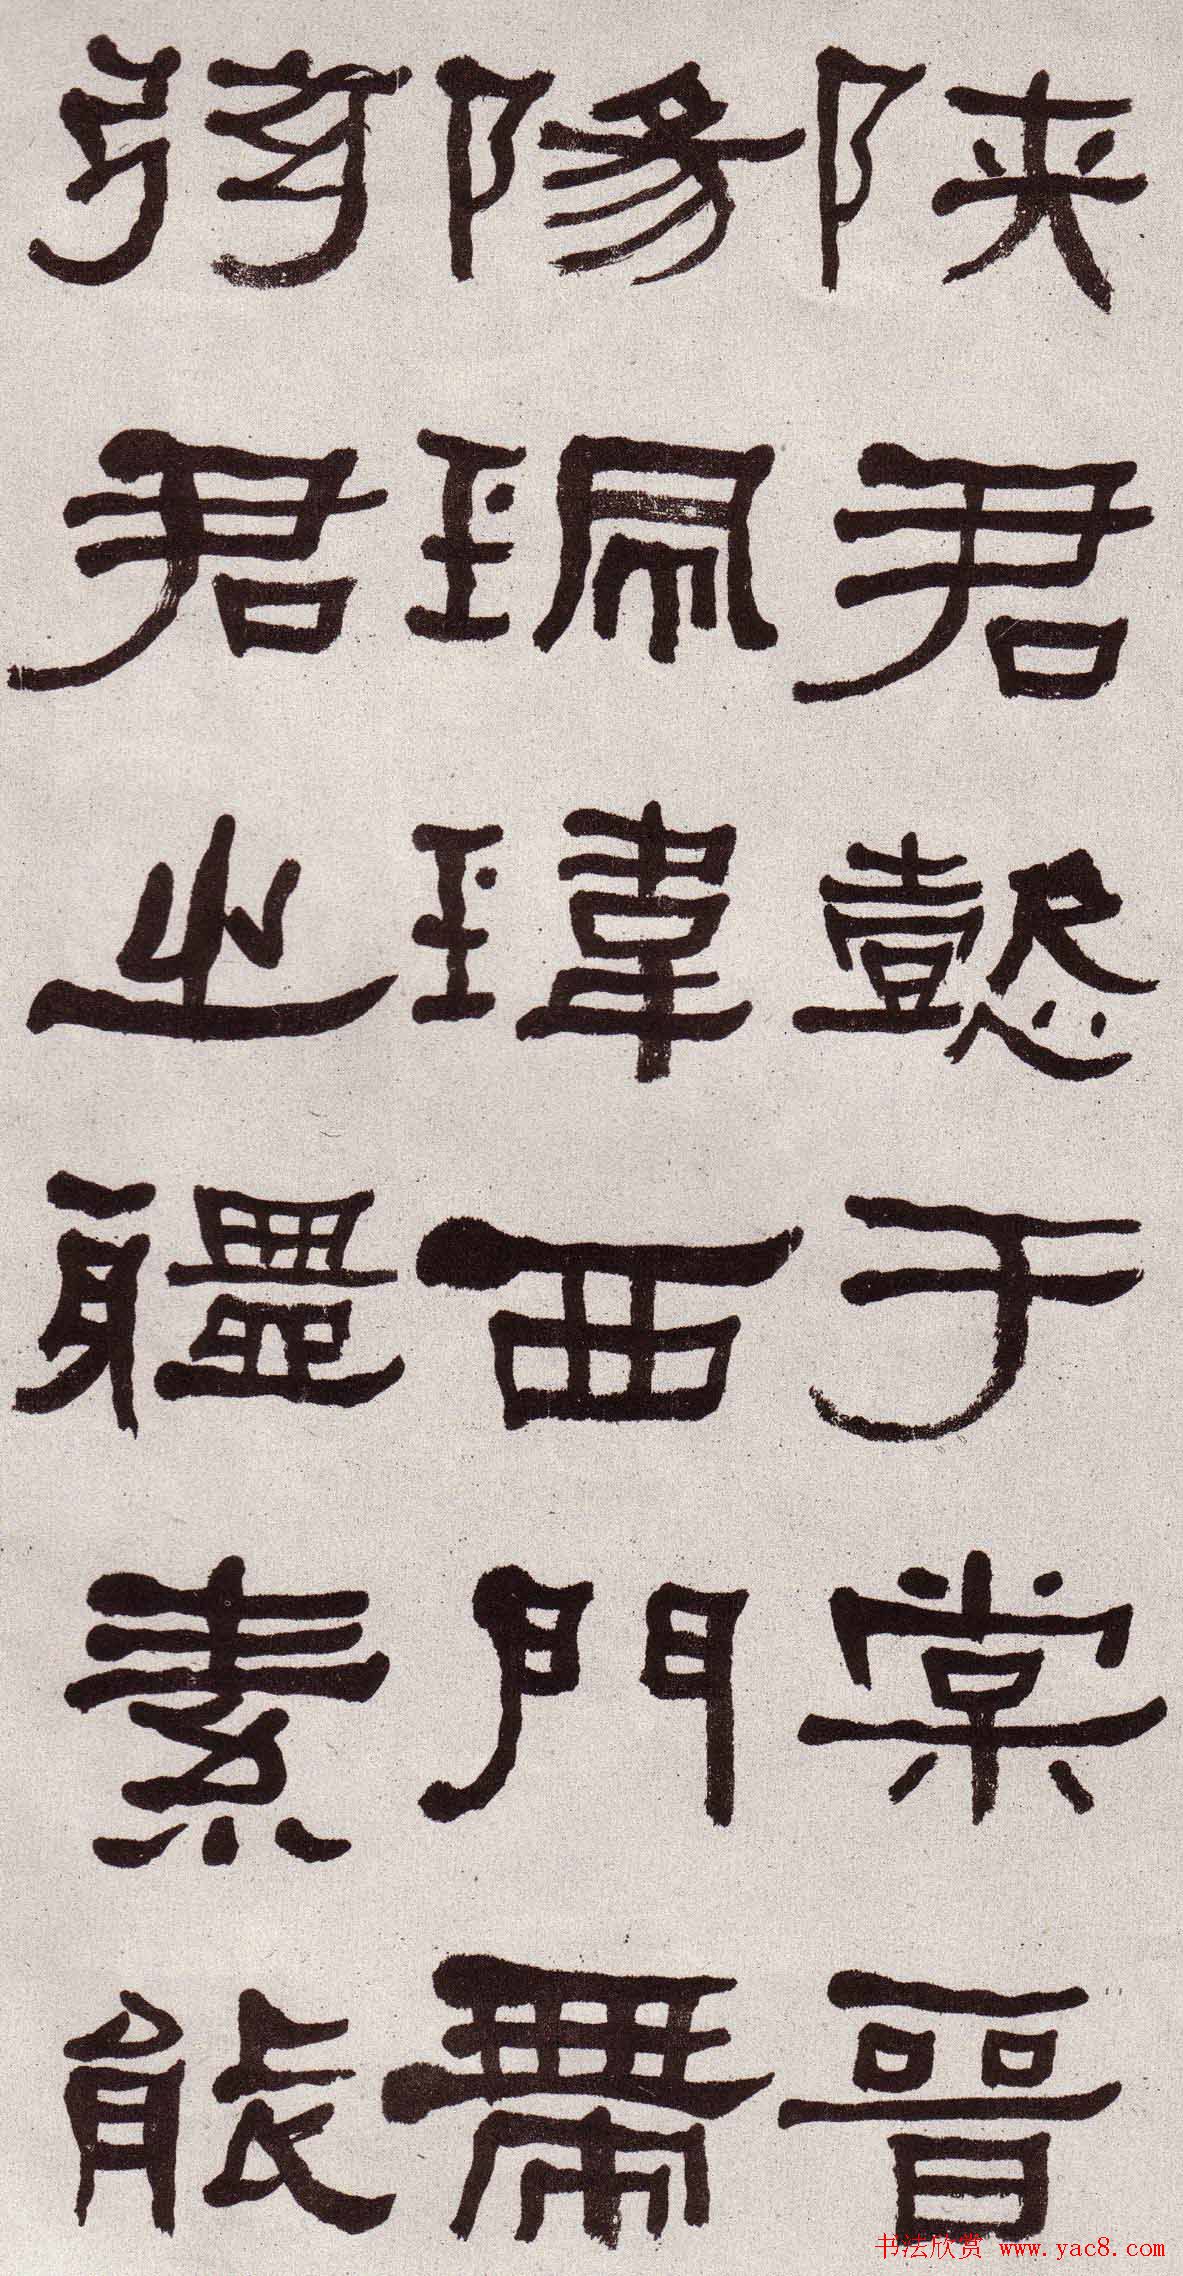 陕君懿于棠晉
陽珮瑋西門帶
弦君之軆素能
书法欣赏 www.yac8.com